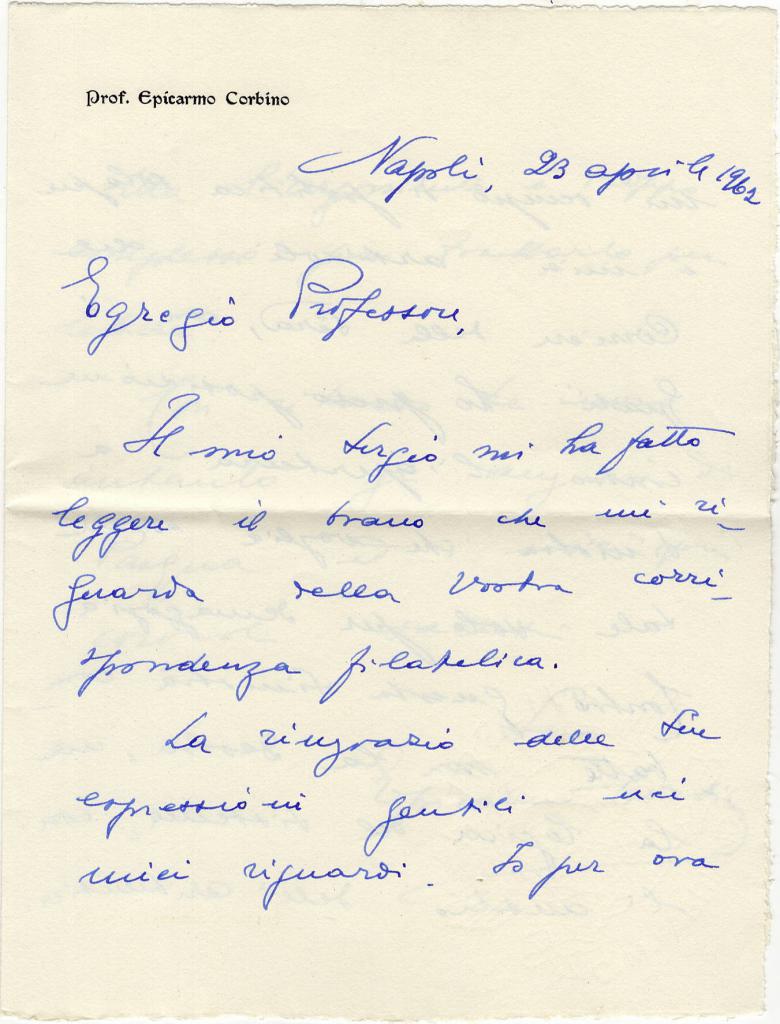 Prof. Epicarmo Corbino
Napoli, 23 aprile 1962
Egregio Professore,
Il mio Sergio mi ha fatto
leggere il brano che mi ri-
guarda della Vostra corri-
spondenza filatelica.
La ringrazio delle Sue
espressioni gentili nei
miei riguardi. Io per ora